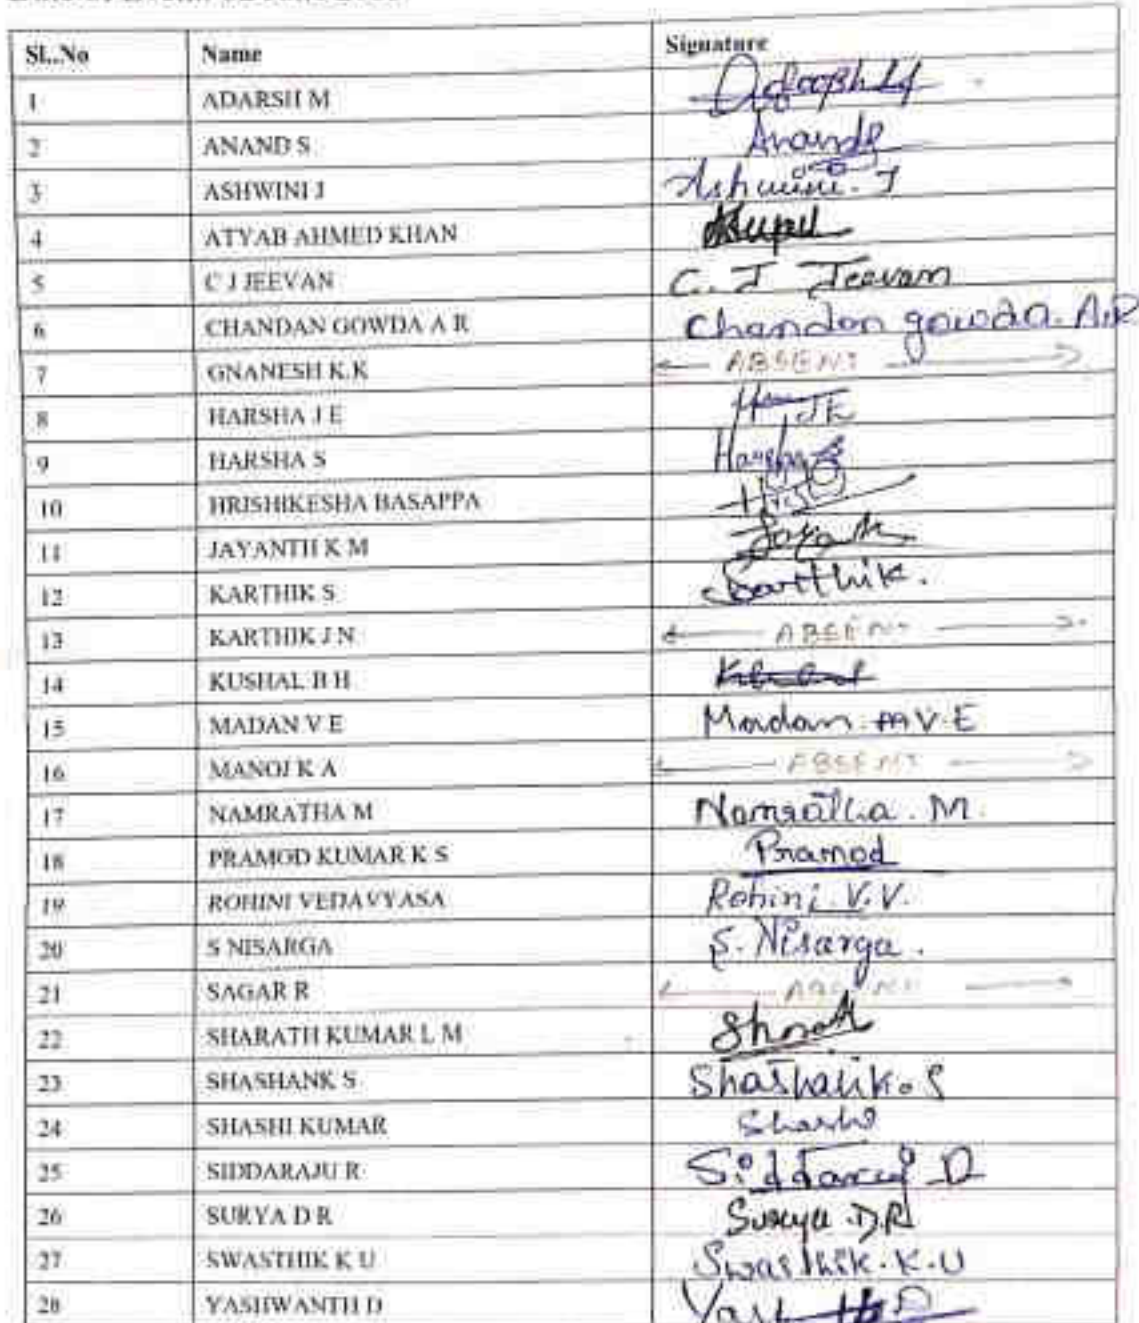 Sl..No Name Signature
1 ADARSH M
2 ANAND S Anand
3 ASHWINI J Ashwini. J
4 ATYAB AHMED KHAN
5 C J JEEVAN C. J Jeevan
6 CHANDAN GOWDA A R Chandan gowda. A.R
7 GNANESH K.K ABSENT
8 HARSHA J E H JE
9 HARSHA S Harsha
10 HRISHIKESHA BASAPPA
11 JAYANTH K M Jayanth
12 KARTHIK S Karthik.
13 KARTHIK J N ABSENT
14 KUSHAL B H
15 MADAN V E Madan V.E
16 MANOJ K A ABSENT
17 NAMRATHA M Namratha. M.
18 PRAMOD KUMAR K S Pramod
19 ROHINI VEDAVYASA Rohini. V.V.
20 S NISARGA S. Nisarga.
21 SAGAR R ABSENT
22 SHARATH KUMAR L M Sharath
23 SHASHANK S Shashank. S
24 SHASHI KUMAR Shashi
25 SIDDARAJU R
26 SURYA D R Surya .D.R
27 SWASTHIK K U Swasthik. K.U
28 YASHWANTH D